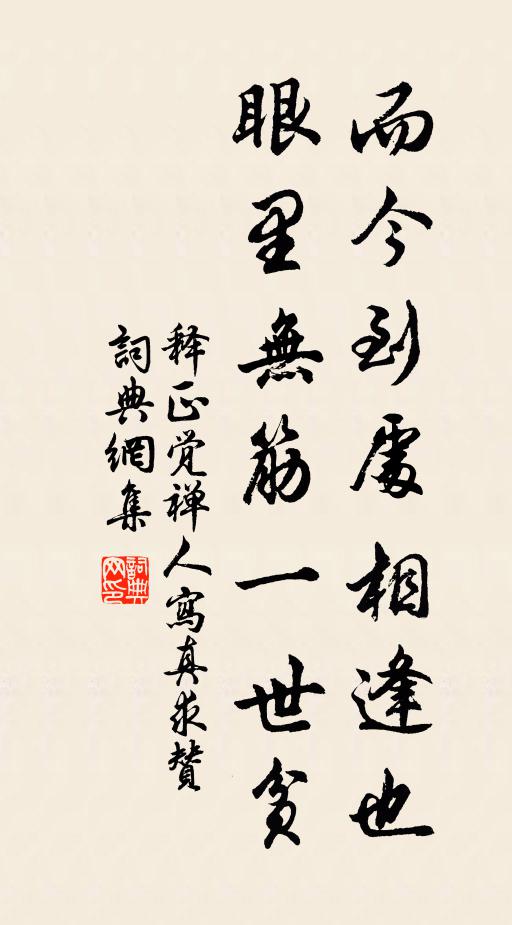 而今到處相逢也
眼里無筋一世貧
释正觉禅人寫真求贊
詞典網集
詞典网印